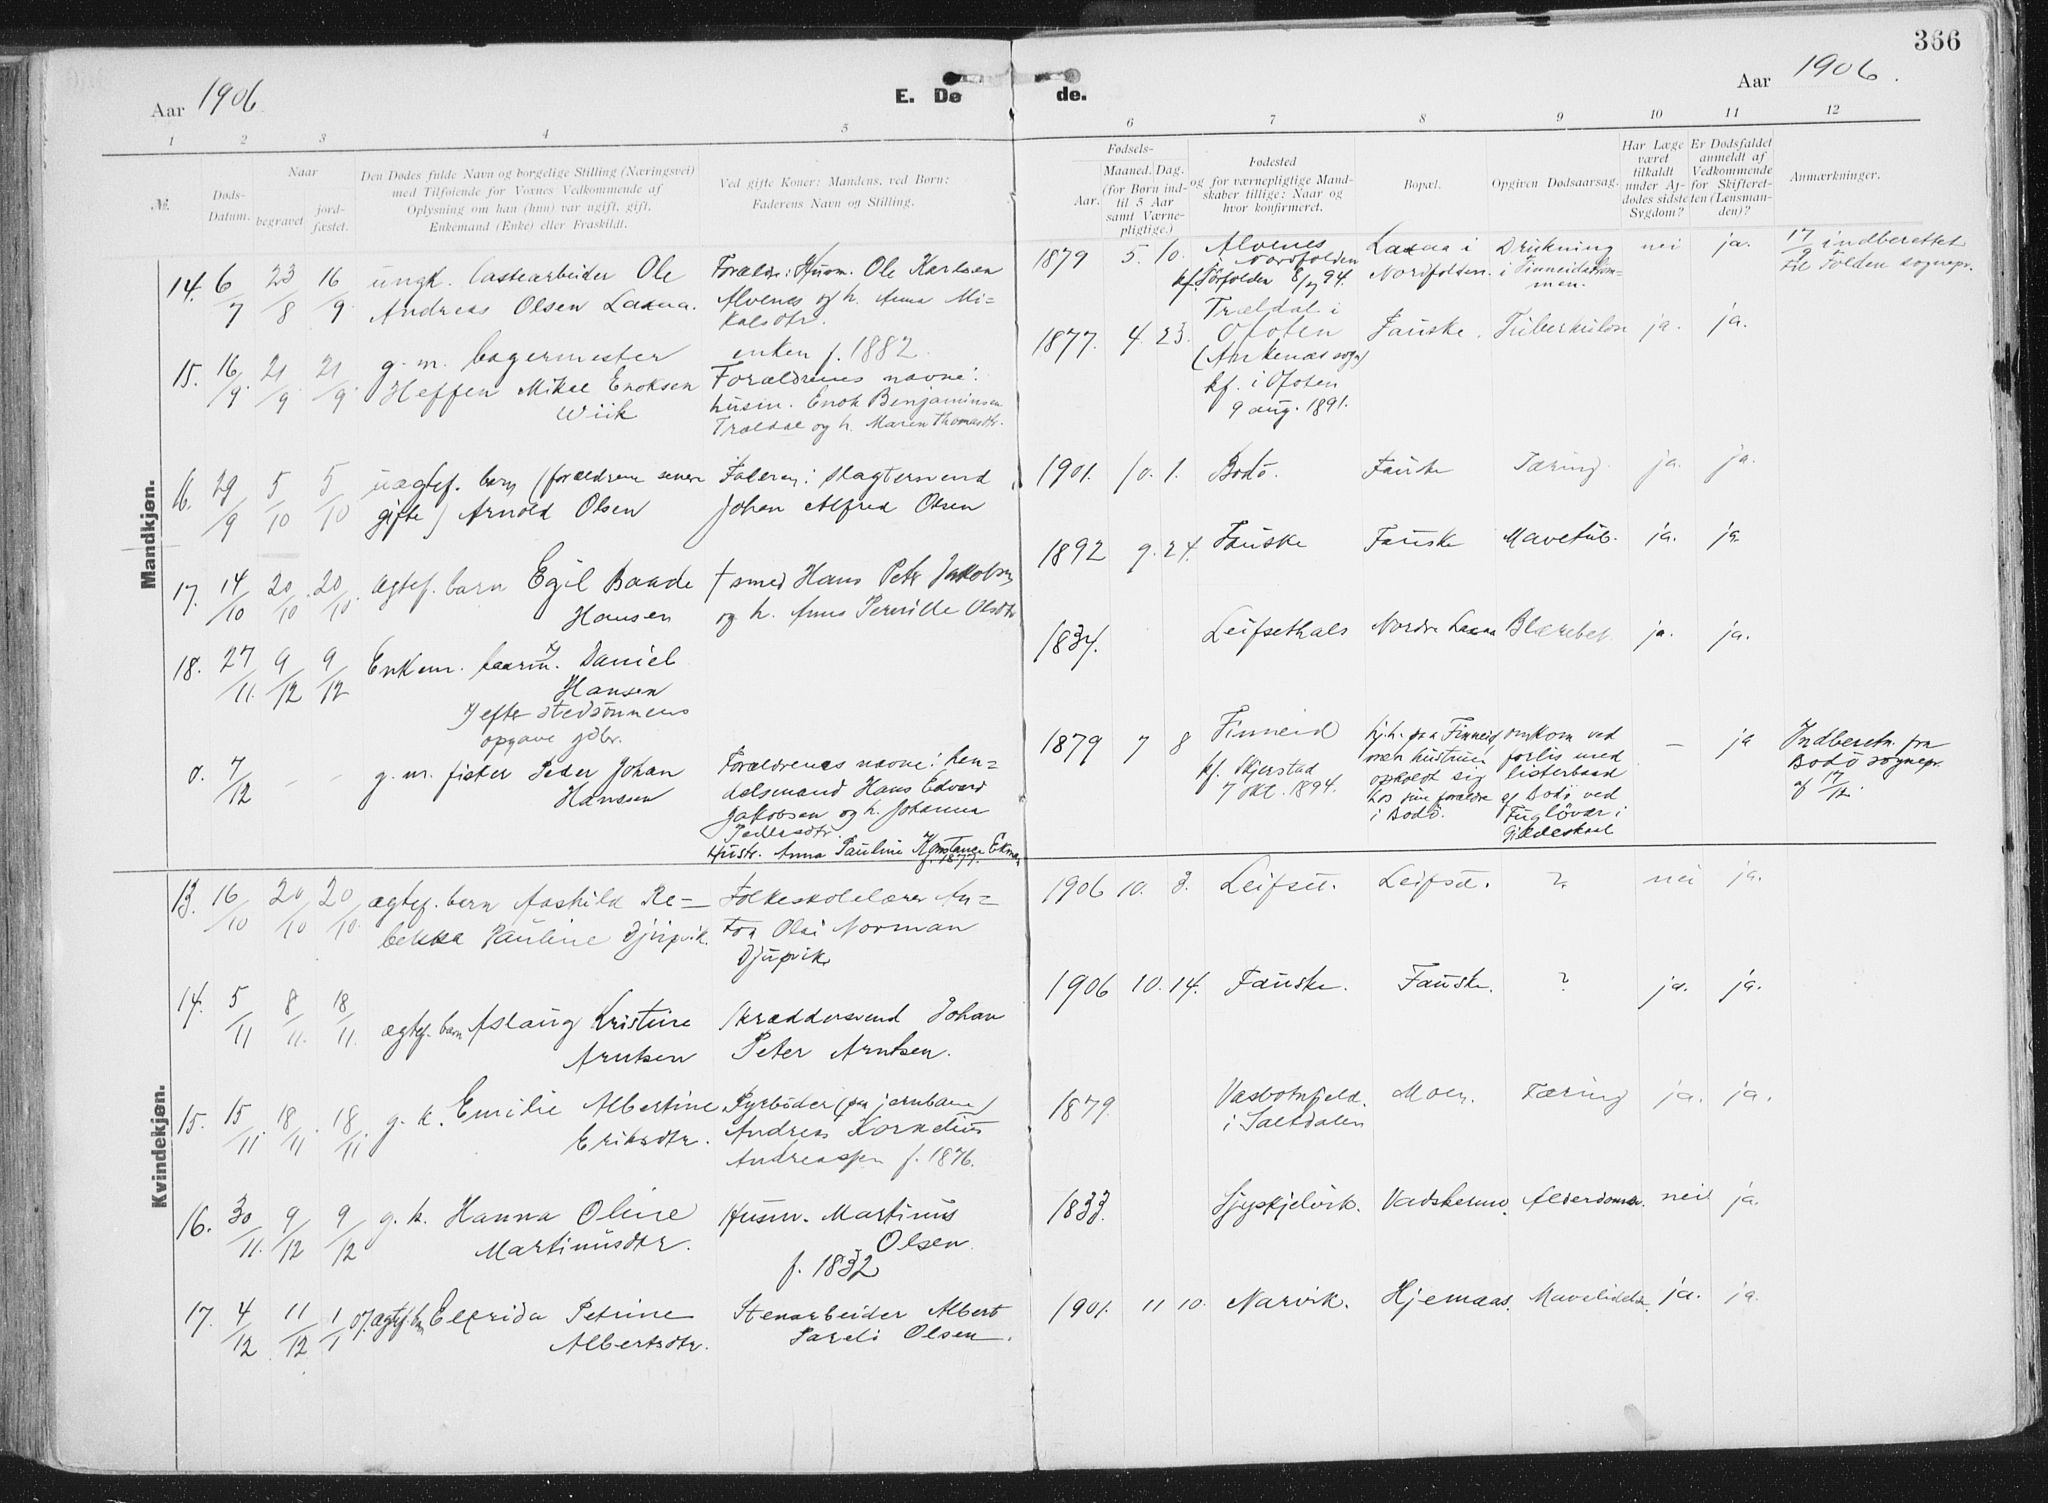 366
Aar 1906
E. Dø de.
Aar 1906.
1 2 3 4 5 6 7 8 9 10 11 12
№.
Døds-
Datum.
Naar
begravet
jord-
fæstet.
Den Dødes fulde Navn og borgelige Stilling (Næringsvei)
med Tilføiende for Voxnes Vedkommende af
Oplysning om han (hun) var ugift, gift,
Enkemand (Enke) eller Fraskildt.
Ved gifte Koner: Mandens, ved Børn:
Faderens Navn og Stilling.
Fødsels-
Aar.
Maaned. Dag.
(for Børn ind-
til 5 Aar
samt Værne-
pligtige.)
Fødested
og for værnepligtige Mand-
skaber tillige: Naar og
hvor konfirmeret.
Bopæl.
Opgiven Dødsaarsag.
Har Læge
været
tilkaldt
under Af-
dødes sidste
Sygdom?
Er Dødsfaldet
anmeldt af
Vedkommende
for Skifteret-
ten (Lensman-
den)?
Anmærkninger.
Mandkjøn.
14. 6/7 23/8 16/9 ungk. lastearbeider Ole
Andreas Olsen Laxaa.
Foræld: Husm. Ole Karlsen
Alvenes og h. Anna Mi-
kalsdtr.
1879 5. 10. Alvenes
i Nordfolden
kf. Sørfolden 8/7 94.
Laxaa i
Nordfolden.
Drukning
i Finneidstrøm-
men.
nei ja. 17/9 indberettet
til Folden sognepr.
15. 16/9. 21/9 21/9. g. m. bagermester
Heffen Mikal Enoksen
Wiik
enken f. 1882.
Forældrenes navne:
husm. Enok Benjaminsen
Trældal og h. Maren Thomasdtr.
1877. 4. 23. Trældal i
Ofoten
(Ankenæs sogn)
kf. i Ofoten
9 aug. 1891.
Fauske. Tuberkulos ja. ja.
16. 29/9 5/10 5/10 uægtef. barn (forældrene senere
gifte) Arnold Olsen
Faderen: slagtersvend
Johan Alfred Olsen
1901. 10. 1. Bodø. Fauske Tæring. ja. ja.
17. 14/10 20/10 20/10. ægtef. barn Egil Baade
Hansen
† smed Hans Peter Jakobsen
og h. Anna Pernille Olsdtr
1892 9. 24. Fauske Fauske Mavetub. ja. ja.
18. 27/11. 9/12 9/12 Enkem. Daniel
Hansen
efter stedsønnens
opgave gdbr.
1834. Leifsethals Nordre Laxaa Blærebet. ja. ja.
0. 7/12 - - g. m. fisker Peder Johan
Hanssen
Forældrenes navne: han-
delsmand Hans Edvard
Jakobsen og h. Johanna
Pedersdtr.
Hustr. Anna Pauline Konstance Ekman
f. 1877.
1879 7 8 Finneid
kf. Skjerstad
7 okt. 1894.
hj.h. paa Finneid
men hustruen
opholdt sig
hos sine forældre
i Bodø.
omkom ved
forlis med
listerbaad
af Bodø ved
Fugløvær i
Gildeskaal
- ja Indberetn. fra
Bodø sognepr.
af 17/12.
Kvindekjøn.
13. 16/10 20/10 20/10. ægtef. barn Aashild Re-
bekka Pauline Djupvik.
Folkeskolelærer An-
ton Olai Norman
Djupvik
1906 10. 3. Leifset. Leifset. ? nei ja.
14. 5/11 8/11. 18/11. ægtef. barn Aslaug Kristine
Arntsen
Skræddersvend Johan
Peter Arntsen.
1906 10. 14. Fauske. Fauske. ? ja. ja.
15. 15/11. 18/11 18/11. g. k. Emilie Albertine
Eriksdtr.
Fyrbøder (paa jernbane)
Andreas Kornelius
Andreassen f. 1876.
1879. Vasbotnfjeld.
i Saltdalen
Moen. Tæring ja. ja.
16. 30/11. 9/12 9/12 g. k. Hanna Oline
Martinusdtr.
Husm. Martinus
Olsen.
f. 1832
1833. Vadskermo. Alderdom nei ja.
17. 4/12 11/12 1/1 07. ægtef. bn Elfrida Petrine
Albertsdtr.
Stenarbeider Albert
Pareli Olsen.
1901. 11 10. Narvik. Hjemaas. Mavelidelse. ja. ja.